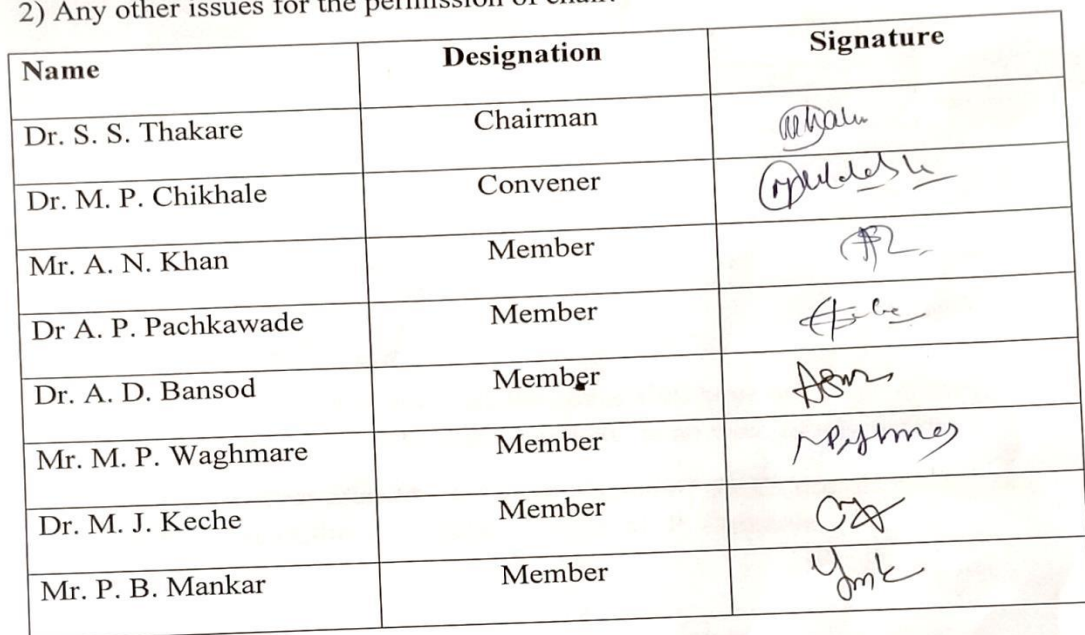 2) Any other issues for the permission of chair.
Name Designation Signature
Dr. S. S. Thakare Chairman
Dr. M. P. Chikhale Convener
Mr. A. N. Khan Member
Dr A. P. Pachkawade Member
Dr. A. D. Bansod Member
Mr. M. P. Waghmare Member
Dr. M. J. Keche Member
Mr. P. B. Mankar Member